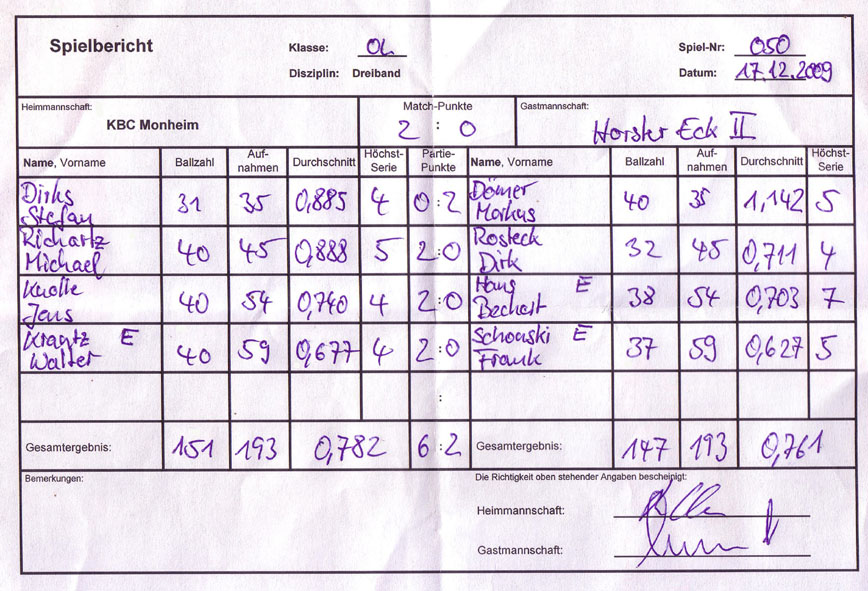 Spielbericht Klasse: OL Spiel-Nr: 050
Disziplin: Dreiband Datum: 17.12.2009
Heimmannschaft: Match-Punkte Gastmannschaft:
KBC Monheim 2 : 0 Horster Eck II
Name, Vorname Ballzahl Auf-nahmen Durchschnitt Höchst-Serie Partie-Punkte Name, Vorname Ballzahl Auf-nahmen Durchschnitt Höchst-Serie
Dirks Stefan 31 35 0,885 4 0:2 Dömer Markus 40 35 1,142 5
Richartz Michael 40 45 0,888 5 2:0 Rosteck Dirk 32 45 0,711 4
Knolle Jens 40 54 0,740 4 2:0 Hans E Bechert 38 54 0,703 7
Krantz E Walter 40 59 0,677 4 2:0 Schonski E Frank 37 59 0,627 5
:
Gesamtergebnis: 151 193 0,782 6:2 Gesamtergebnis: 147 193 0,761
Bemerkungen: Die Richtigkeit oben stehender Angaben bescheinigt:
Heimmannschaft:
Gastmannschaft: